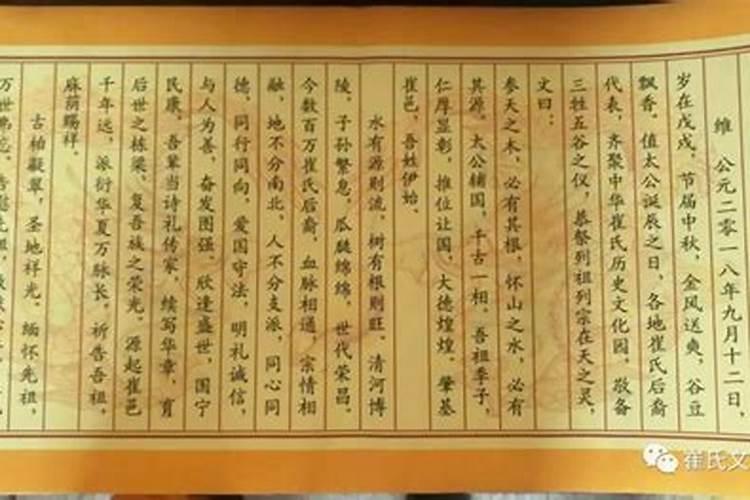 维 公元二零一八年九月十二日，
岁在戊戌，节届中秋，金风送爽，谷豆
飘香。值太公诞辰之日，各地崔氏后裔
代表，齐聚中华崔氏历史文化园，敬备
三牲五谷之仪，恭祭列祖列宗在天之灵，
文曰：
参天之木，必有其根，怀山之水，必有
其源。太公辅国，千古一相。吾祖季子，
仁厚显彰，推位让国，大德煌煌。肇基
崔邑，吾姓伊始。
水有源则流，树有根则旺。清河博
陵，子孙繁息，瓜瓞绵绵，世代荣昌。
今数百万崔氏后裔，血脉相通，宗情相
融，地不分南北，人不分支派，同心同
德，同行同向，爱国守法，明礼诚信，
与人为善，奋发图强。欣逢盛世，国宁
民康，吾辈当诗礼传家，续写华章，育
后世之栋梁，复吾族之荣光。源起崔邑
千年远，派衍华夏万脉长，祈告吾祖，
麻荫赐祥。
古柏凝翠，圣地祥光。缅怀先祖，
万世
崔氏文